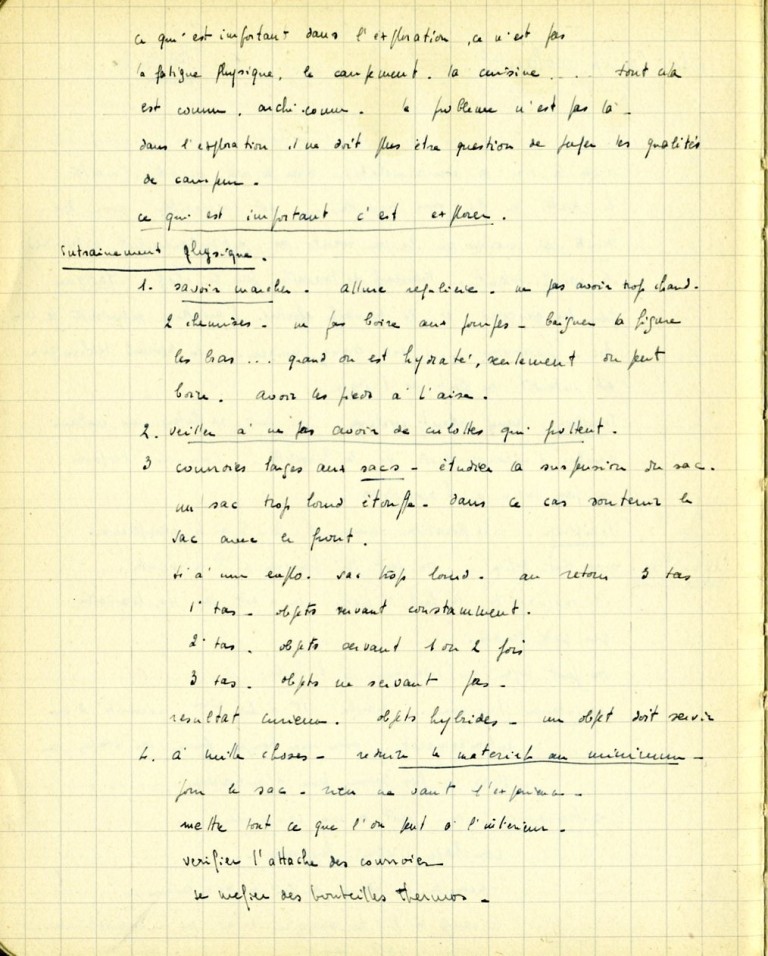 ce qui est important dans l'exploration, ce n'est pas
la fatigue physique, le campement. la cuisine .... tout cela
est connu, archi-connu. le problème n'est pas là -
dans l'exploration il ne doit plus être question de juger les qualités
de campeur.
ce qui est important c'est explorer.
Entrainement physique.
1. savoir marcher. allure reguliere. ne pas avoir trop chaud.
2 chemises. ne pas boire aux pompes - baigner la figure
les bras ... quand on est hydraté, seulement on peut
boire. avoir les pieds à l'aise.
2. veiller à ne pas avoir de culottes qui frottent.
3 courroies larges aux sacs - étudier la suspension du sac.
un sac trop lourd étouffe - dans ce cas soutenir le
sac avec le front.
si à une explo. sac trop lourd. au retour 3 tas
1° tas - objets servant constamment.
2° tas. objets servant 1 ou 2 fois
3 tas. objets ne servant pas -
resultat curieux. objets hybrides - un objet doit servir
4. à mille choses - reduire le materiel au minimum -
pour le sac - rien ne vaut l'experience -
mettre tout ce que l'on peut à l'interieur -
verifier l'attache des courroies
se mefier des bouteilles thermos -